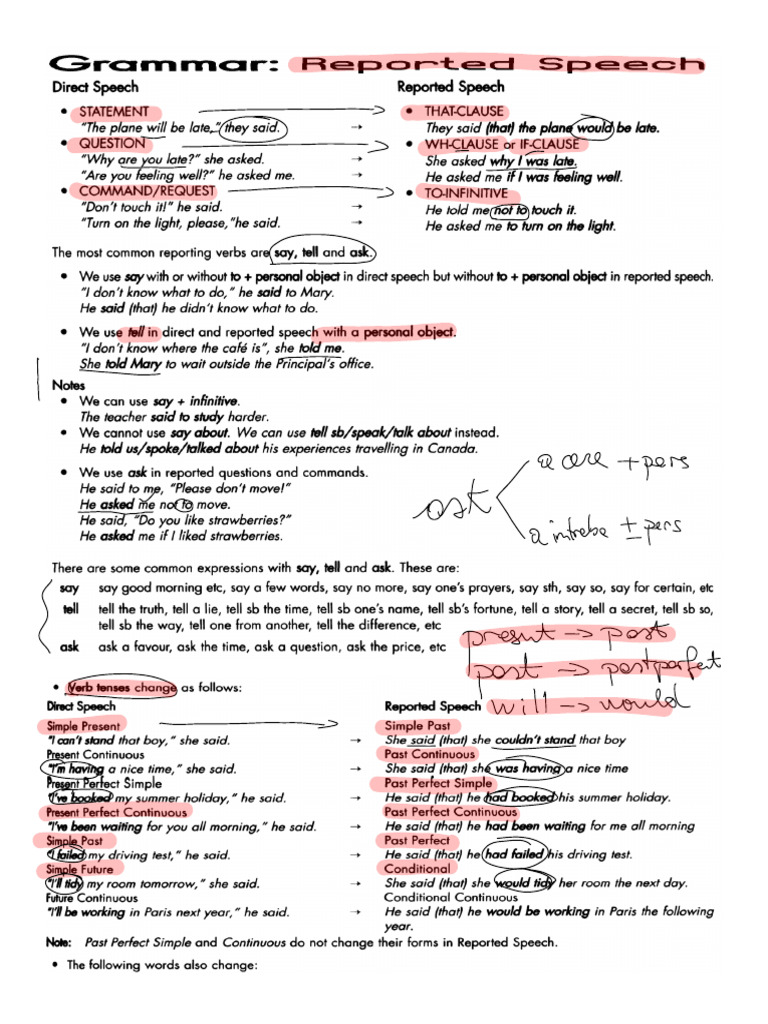 Grammar: Reported Speech
Direct Speech Reported Speech
• STATEMENT • THAT-CLAUSE
"The plane will be late," they said. → They said (that) the plane would be late.
• QUESTION • WH-CLAUSE or IF-CLAUSE
"Why are you late?" she asked. → She asked why I was late.
"Are you feeling well?" he asked me. → He asked me if I was feeling well.
• COMMAND/REQUEST • TO-INFINITIVE
"Don't touch it!" he said. → He told me not to touch it.
"Turn on the light, please,"he said. → He asked me to turn on the light.
The most common reporting verbs are say, tell and ask.
• We use say with or without to + personal object in direct speech but without to + personal object in reported speech.
"I don't know what to do," he said to Mary.
He said (that) he didn't know what to do.
• We use tell in direct and reported speech with a personal object.
"I don't know where the café is", she told me.
She told Mary to wait outside the Principal's office.
Notes
• We can use say + infinitive.
The teacher said to study harder.
• We cannot use say about. We can use tell sb/speak/talk about instead.
He told us/spoke/talked about his experiences travelling in Canada.
• We use ask in reported questions and commands.
He said to me, "Please don't move!"
He asked me not to move.
He said, "Do you like strawberries?"
He asked me if I liked strawberries.
ask
a cere + pers
a intreba ± pers
There are some common expressions with say, tell and ask. These are:
say say good morning etc, say a few words, say no more, say one's prayers, say sth, say so, say for certain, etc
tell tell the truth, tell a lie, tell sb the time, tell sb one's name, tell sb's fortune, tell a story, tell a secret, tell sb so,
tell sb the way, tell one from another, tell the difference, etc
ask ask a favour, ask the time, ask a question, ask the price, etc
present → past
past → past perfect
will → would
• Verb tenses change as follows:
Direct Speech Reported Speech
Simple Present Simple Past
"I can't stand that boy," she said. → She said (that) she couldn't stand that boy
Present Continuous Past Continuous
"I'm having a nice time," she said. → She said (that) she was having a nice time
Present Perfect Simple Past Perfect Simple
"I've booked my summer holiday," he said. → He said (that) he had booked his summer holiday.
Present Perfect Continuous Past Perfect Continuous
"I've been waiting for you all morning," he said. → He said (that) he had been waiting for me all morning
Simple Past Past Perfect
"I failed my driving test," he said. → He said (that) he had failed his driving test.
Simple Future Conditional
"I'll tidy my room tomorrow," she said. → She said (that) she would tidy her room the next day.
Future Continuous Conditional Continuous
"I'll be working in Paris next year," he said. → He said (that) he would be working in Paris the following
year.
Note: Past Perfect Simple and Continuous do not change their forms in Reported Speech.
• The following words also change: